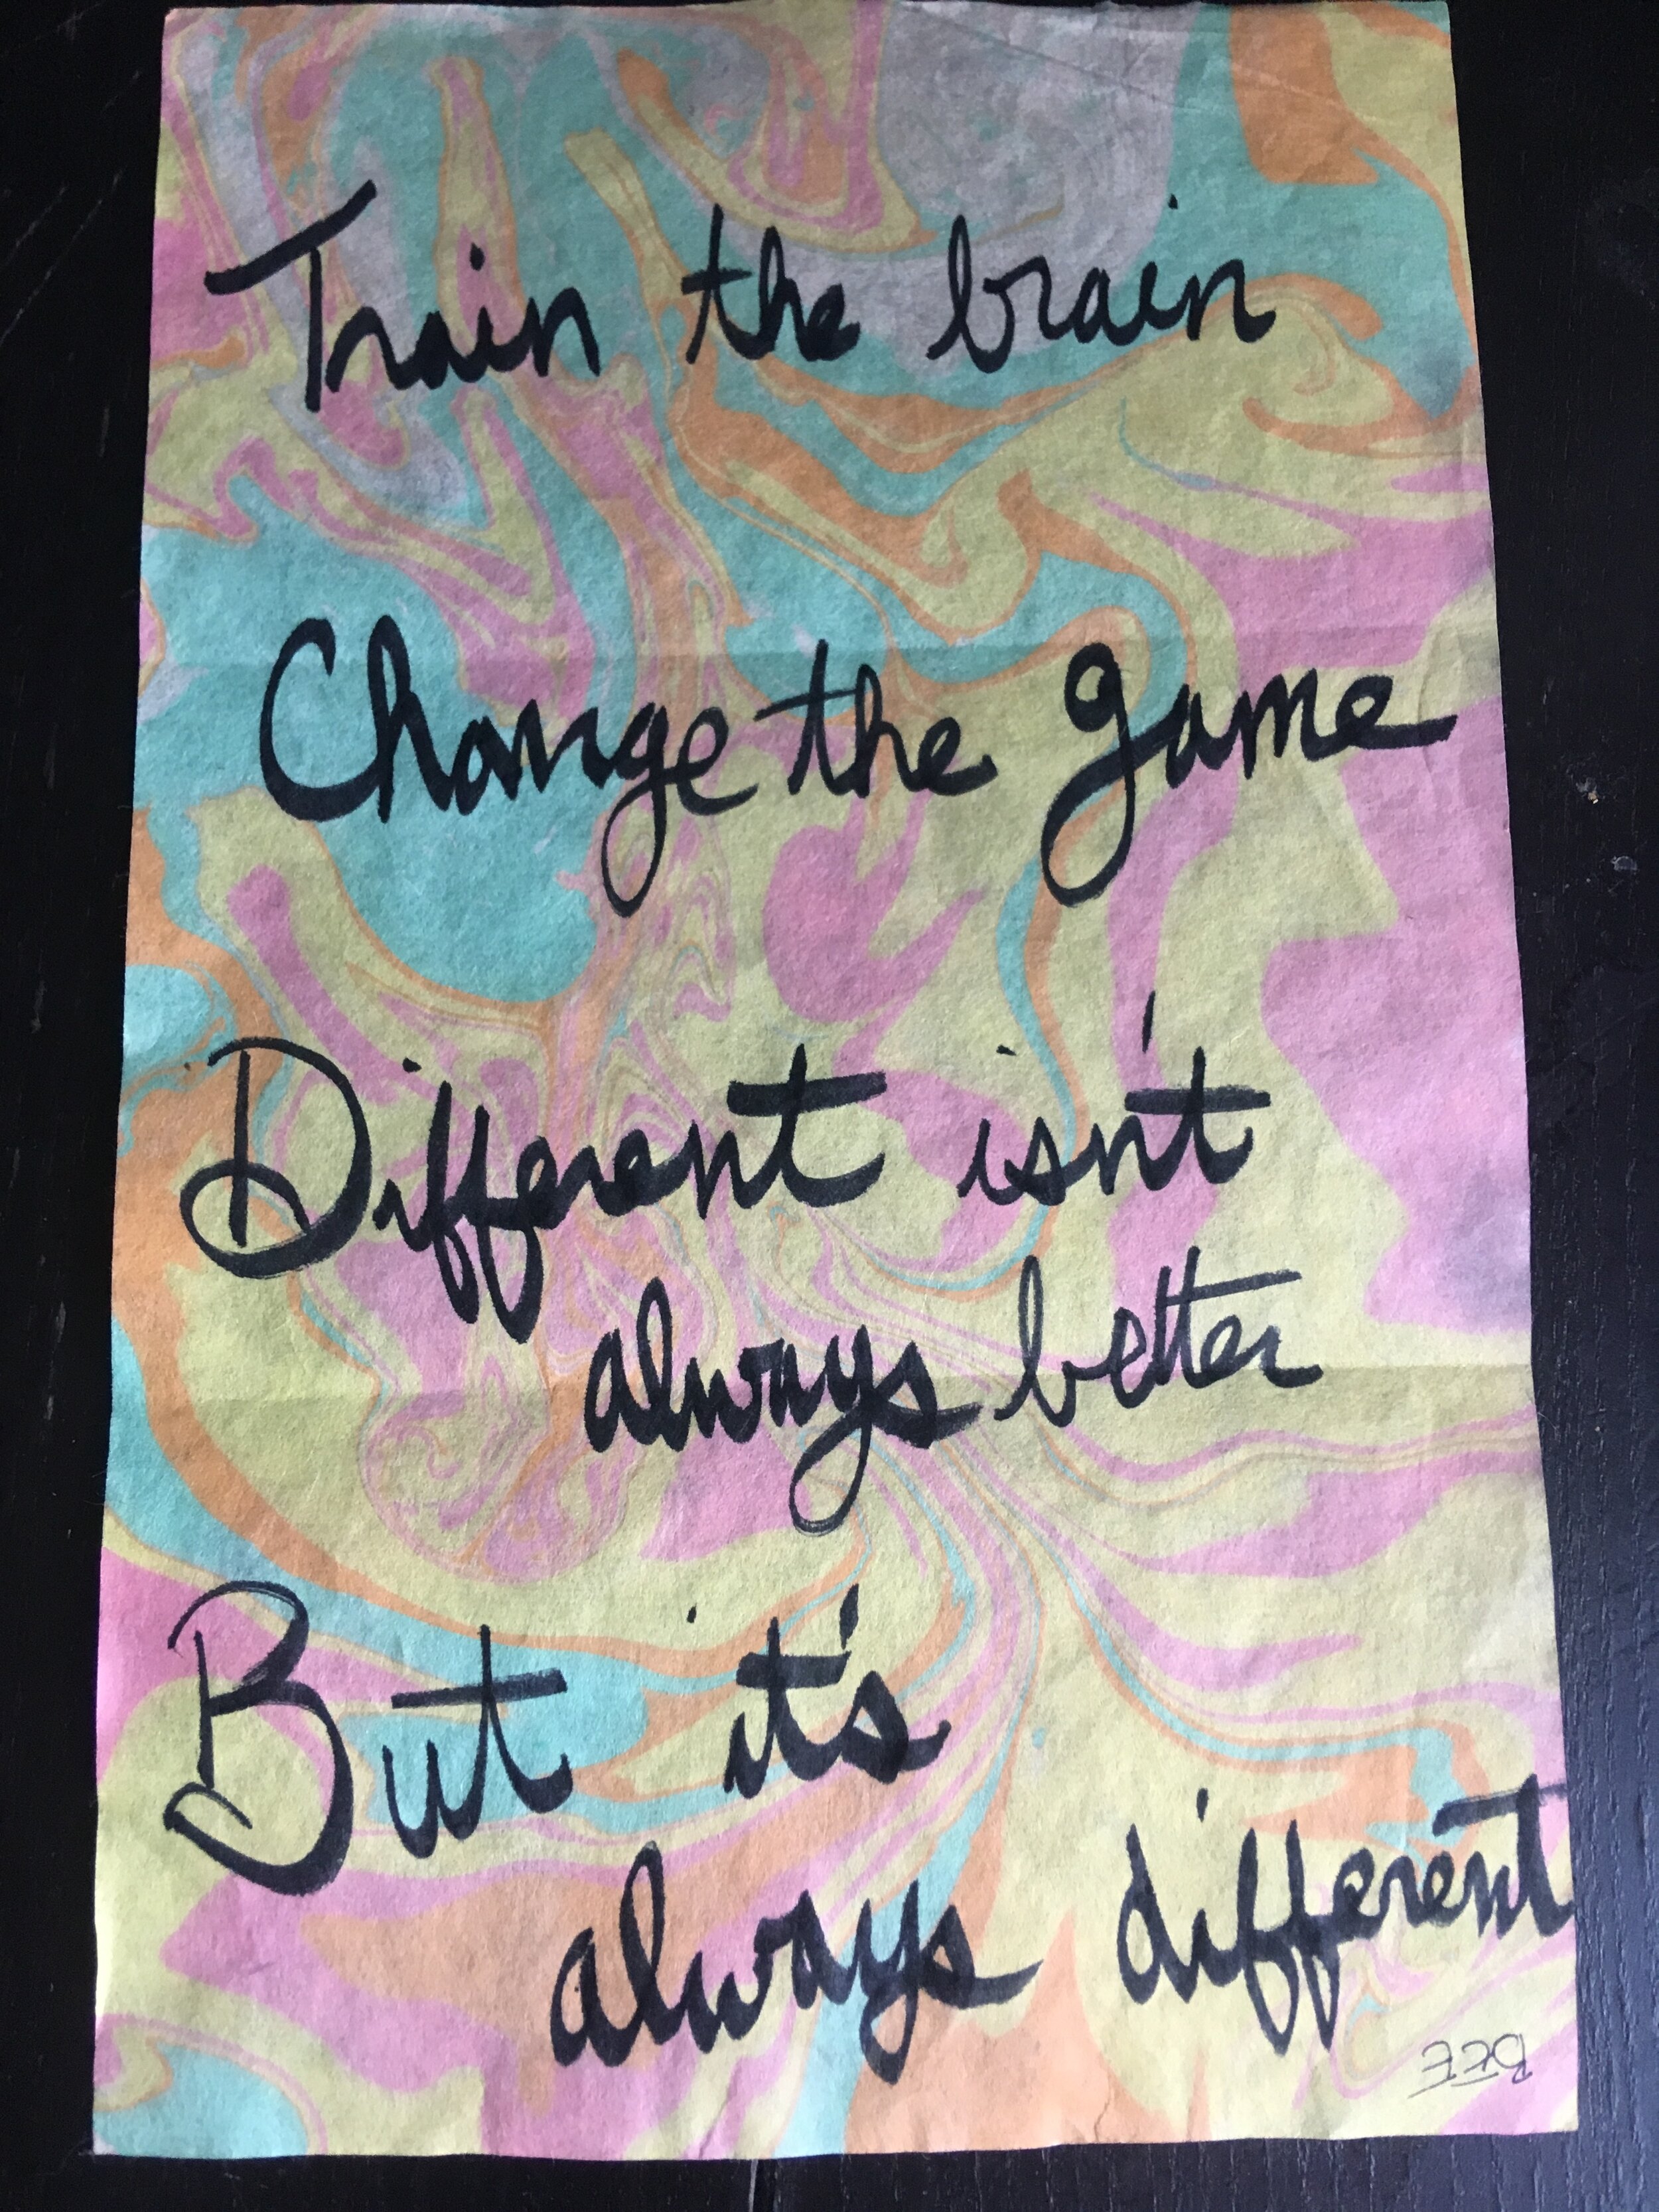 Train the brain
Change the game
Different isn't
always better
But it's
always different